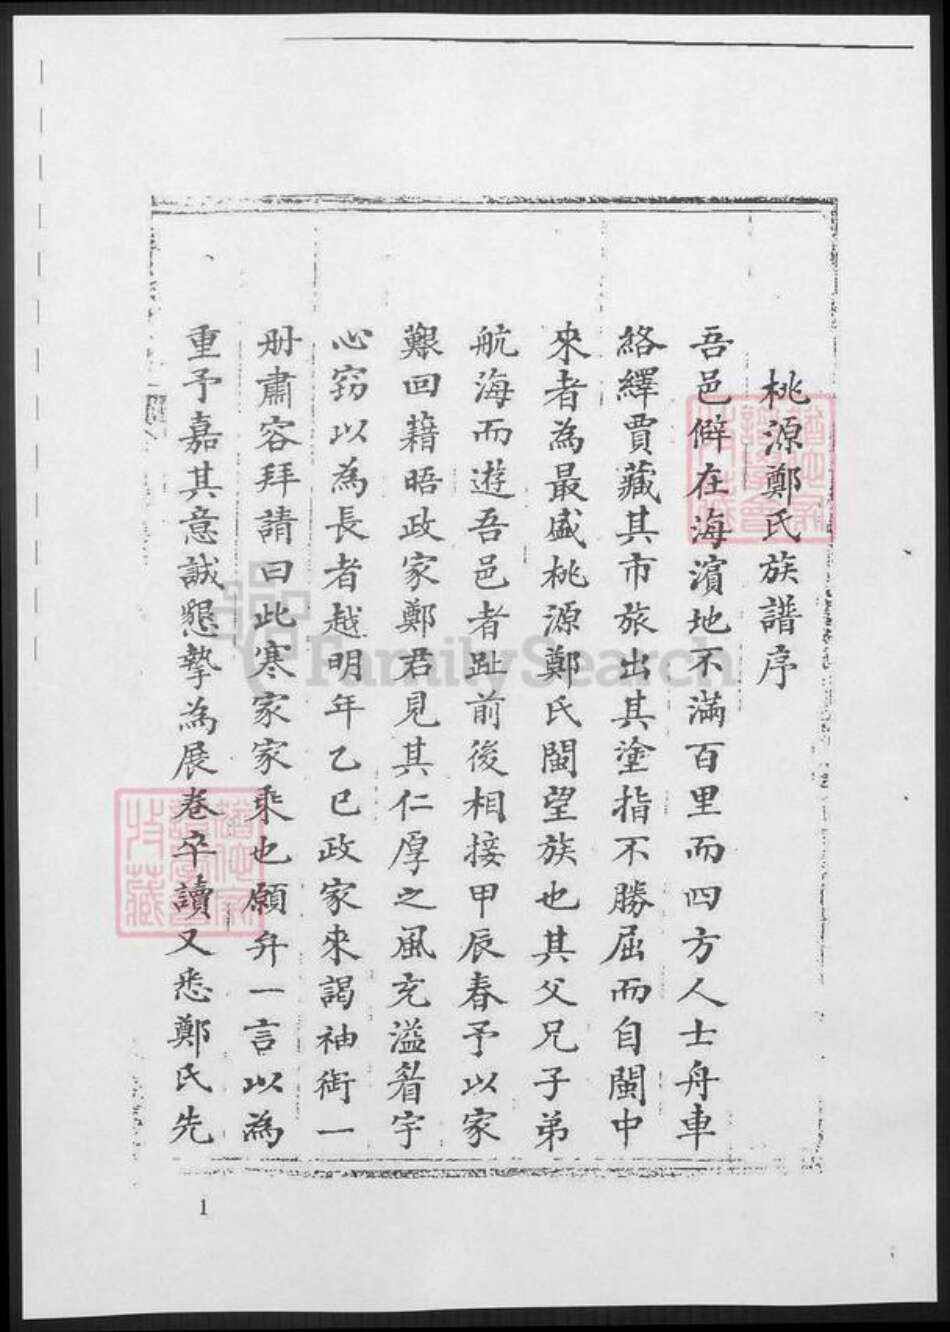 桃源鄭氏族譜序
吾邑僻在海濱地不滿百里而四方人士舟車
絡繹賈藏其市旅出其塗指不勝屈而自閩中
來者為最盛桃源鄭氏閩望族也其父兄子弟
航海而遊吾邑者趾前後相接甲辰春予以家
艱回籍晤政家鄭君見其仁厚之風充溢眉宇
心窃以為長者越明年乙巳政家來謁袖衔一
册肅容拜請曰此寒家家乘也願弁一言以為
重予嘉其意誠懇摯為展卷卒讀又悉鄭氏先
1
FamilySearch